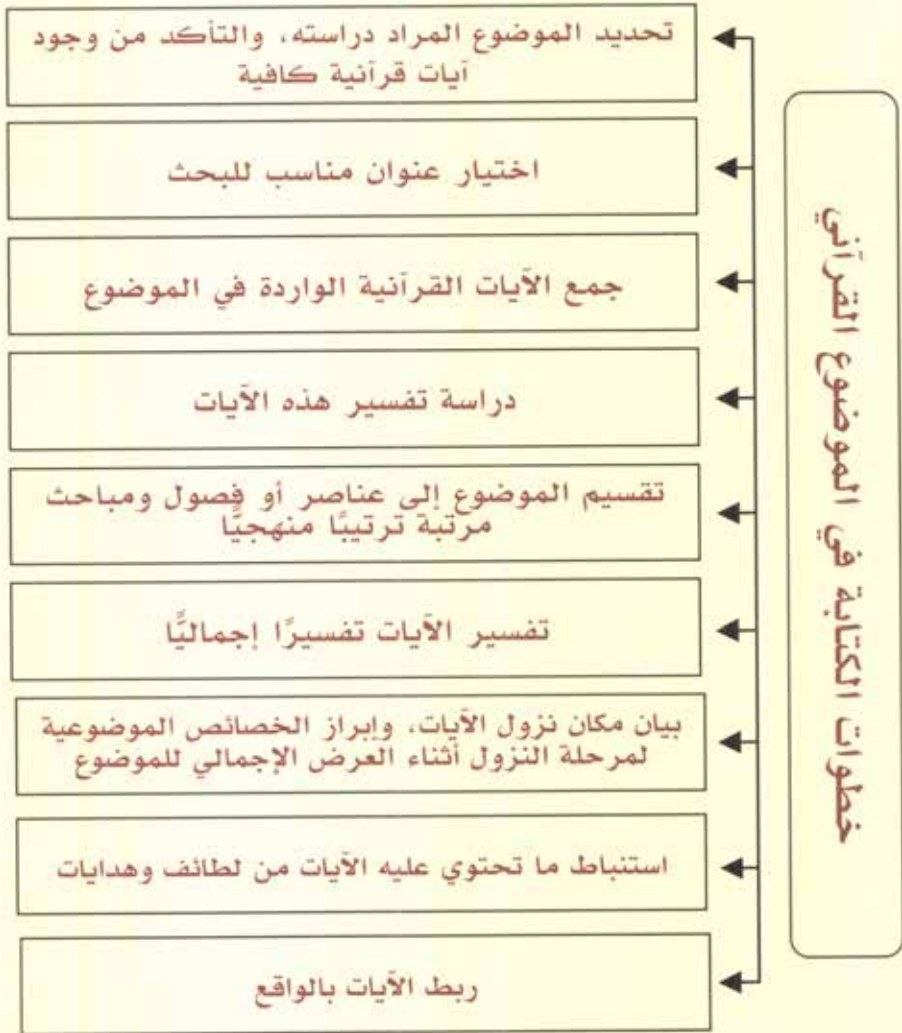 خطوات الكتابة في الموضوع القرآني
تحديد الموضوع المراد دراسته، والتأكد من وجود
آيات قرآنية كافية
اختيار عنوان مناسب للبحث
جمع الآيات القرآنية الواردة في الموضوع
دراسة تفسير هذه الآيات
تقسيم الموضوع إلى عناصر أو فصول ومباحث
مرتبة ترتيبًا منهجيًّا
تفسير الآيات تفسيرًا إجماليًّا
بيان مكان نزول الآيات، وإبراز الخصائص الموضوعية
لمرحلة النزول أثناء العرض الإجمالي للموضوع
استنباط ما تحتوي عليه الآيات من لطائف وهدايات
ربط الآيات بالواقع